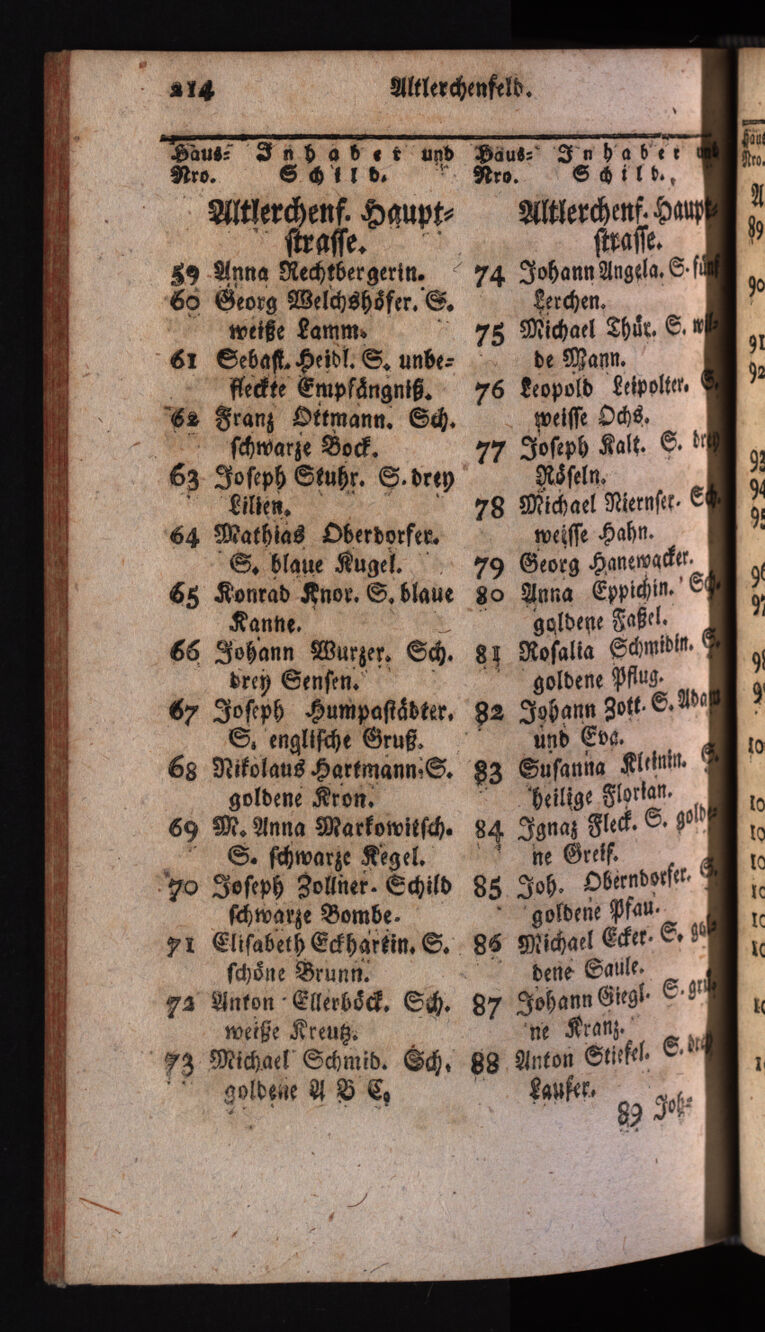 214 Altlerchenfeld.
Haus- Inhaber und
Nro. Schild.
Altlerchenf. Haupt-
strasse.
59 Anna Rechtbergerin.
60 Georg Welchshöfer. S.
weiße Lamm.
61 Sebast. Heidl. S. unbe-
fleckte Empfängniß.
62 Franz Ottmann. Sch.
schwarze Bock.
63 Joseph Stuhr. S. drey
Lilien.
64 Mathias Oberdorfer.
S. blaue Kugel.
65 Konrad Knor. S. blaue
Kanne.
66 Johann Wurzer. Sch.
drey Sensen.
67 Joseph Humpastädter.
S. englische Gruß.
68 Nikolaus Hartmann. S.
goldene Kron.
69 M. Anna Markowitsch.
S. schwarze Kegel.
70 Joseph Zollner. Schild
schwarze Bombe.
71 Elisabeth Eckhartin. S.
schöne Brunn.
72 Anton Ellerböck. Sch.
weiße Kreutz.
73 Michael Schmid. Sch.
goldene A B C.
Haus- Inhaber
Nro. Schild.
Altlerchenf. Haupt-
strasse.
74 Johann Angela. S. fünf
Lerchen.
75 Michael Thür. S. wil-
de Mann.
76 Leopold Leipolter. S.
weisse Ochs.
77 Joseph Kalt. S. drey
Röseln.
78 Michael Niernser. Sch.
weisse Hahn.
79 Georg Hanewacker.
80 Anna Eppichin. Sch.
goldene Faßel.
81 Rosalia Schmidin. S.
goldene Pflug.
82 Johann Zott. S. Adam
und Eva.
83 Susanna Kleinin. S.
heilige Florian.
84 Ignaz Fleck. S. golde-
ne Greif.
85 Joh. Oberndorfer. S.
goldene Pfau.
86 Michael Ecker. S. gol-
dene Saule.
87 Johann Giegl. S. grü-
ne Kranz.
88 Anton Stiefel. S. drey
Laufer.
89 Joh-